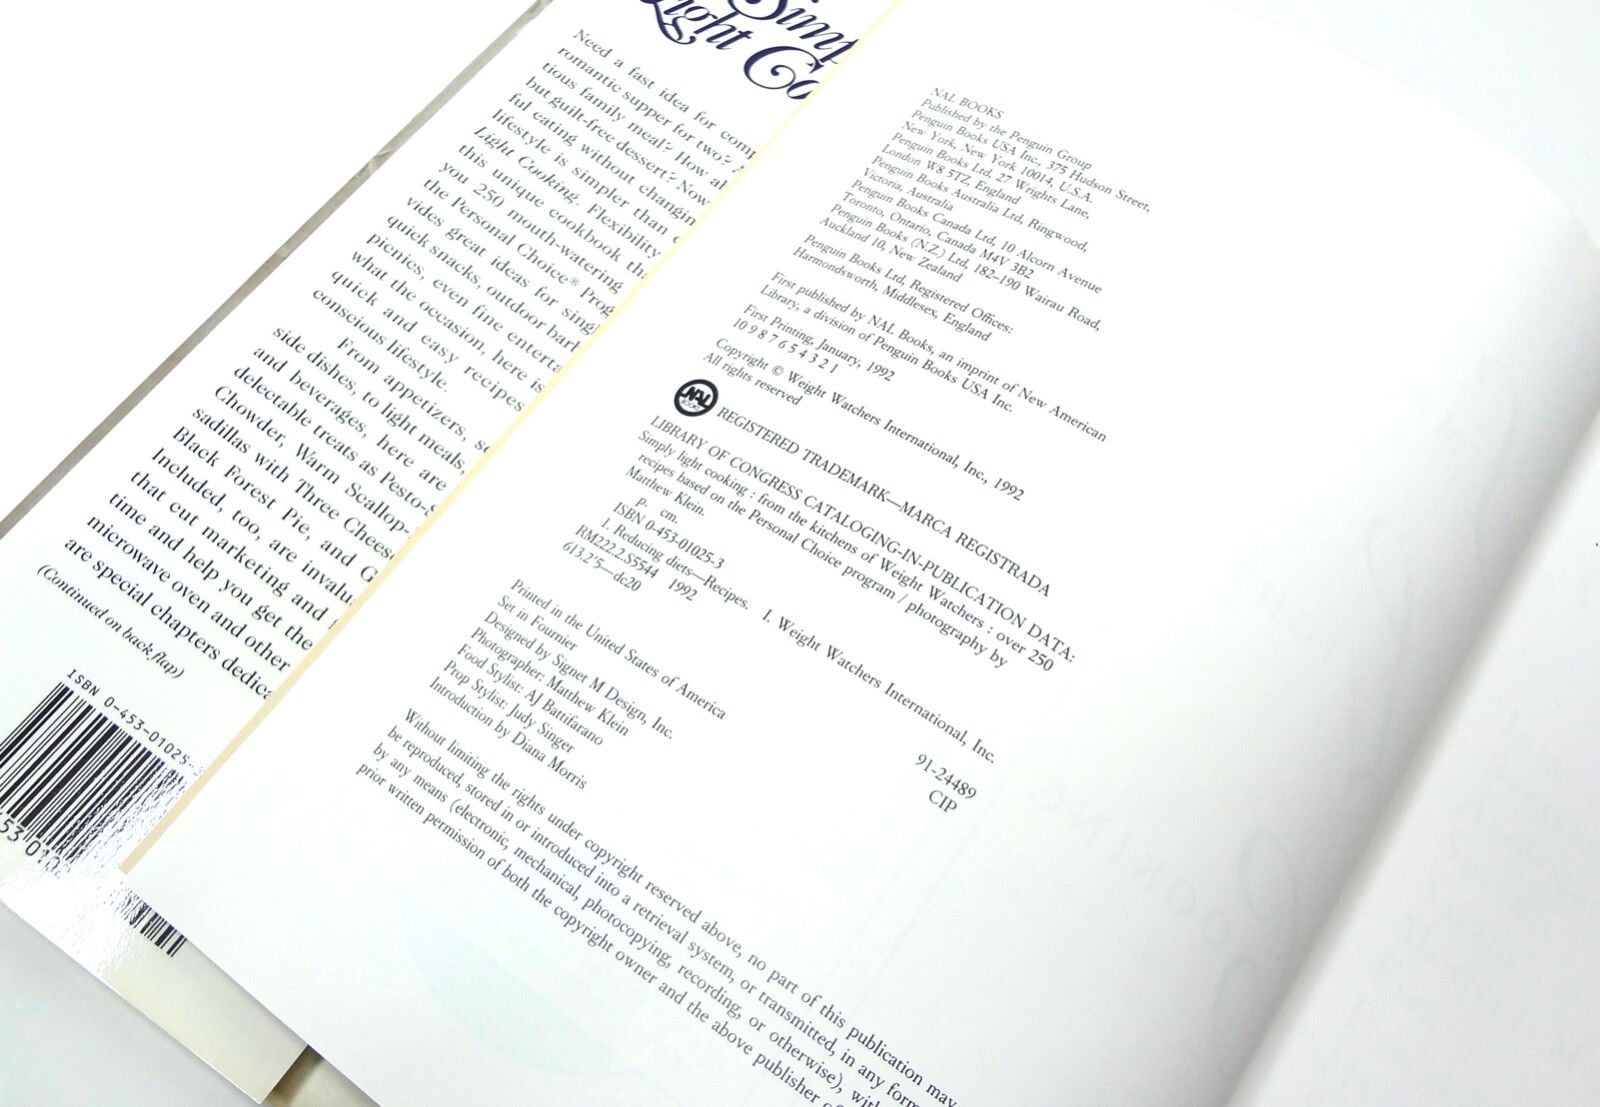 Simp
Light Co
Need a fast idea for comp
romantic supper for two? A
tious family meal? How ab
but guilt-free dessert? Now
ful eating without changin
lifestyle is simpler than
Light Cooking. Flexibility
this unique cookbook tha
you 250 mouth-watering
the Personal Choice® Prog
vides great ideas for singl
quick snacks, outdoor barb
picnics, even fine enterta
what the occasion, here is
quick and easy recipes
conscious lifestyle.
From appetizers, so
side dishes, to light meals,
and beverages, here are
delectable treats as Pesto-S
Chowder, Warm Scallop-
sadillas with Three Chees
Black Forest Pie, and G
Included, too, are invalua
that cut marketing and
time and help you get the
microwave oven and other
are special chapters dedica
(Continued on back flap)
ISBN 0-453-01025-
53 0102
NAL BOOKS
Published by the Penguin Group
Penguin Books USA Inc., 375 Hudson Street,
New York, New York 10014, U.S.A.
Penguin Books Ltd, 27 Wrights Lane,
London W8 5TZ, England
Penguin Books Australia Ltd, Ringwood,
Victoria, Australia
Penguin Books Canada Ltd, 10 Alcorn Avenue
Toronto, Ontario, Canada M4V 3B2
Penguin Books (N.Z.) Ltd, 182–190 Wairau Road,
Auckland 10, New Zealand
Penguin Books Ltd, Registered Offices:
Harmondsworth, Middlesex, England
First published by NAL Books, an imprint of New American
Library, a division of Penguin Books USA Inc.
First Printing, January, 1992
10 9 8 7 6 5 4 3 2 1
Copyright © Weight Watchers International, Inc., 1992
All rights reserved
NAL BOOKS REGISTERED TRADEMARK—MARCA REGISTRADA
LIBRARY OF CONGRESS CATALOGING-IN-PUBLICATION DATA:
Simply light cooking : from the kitchens of Weight Watchers : over 250
recipes based on the Personal Choice program / photography by
Matthew Klein.
p. cm.
ISBN 0-453-01025-3
1. Reducing diets—Recipes. I. Weight Watchers International, Inc.
RM222.2.S5544 1992
613.2'5—dc20 91-24489
CIP
Printed in the United States of America
Set in Fournier
Designed by Signet M Design, Inc.
Photographer: Matthew Klein
Food Stylist: AJ Battifarano
Prop Stylist: Judy Singer
Introduction by Diana Morris
Without limiting the rights under copyright reserved above, no part of this publication may
be reproduced, stored in or introduced into a retrieval system, or transmitted, in any form
by any means (electronic, mechanical, photocopying, recording, or otherwise), with
prior written permission of both the copyright owner and the above publisher of